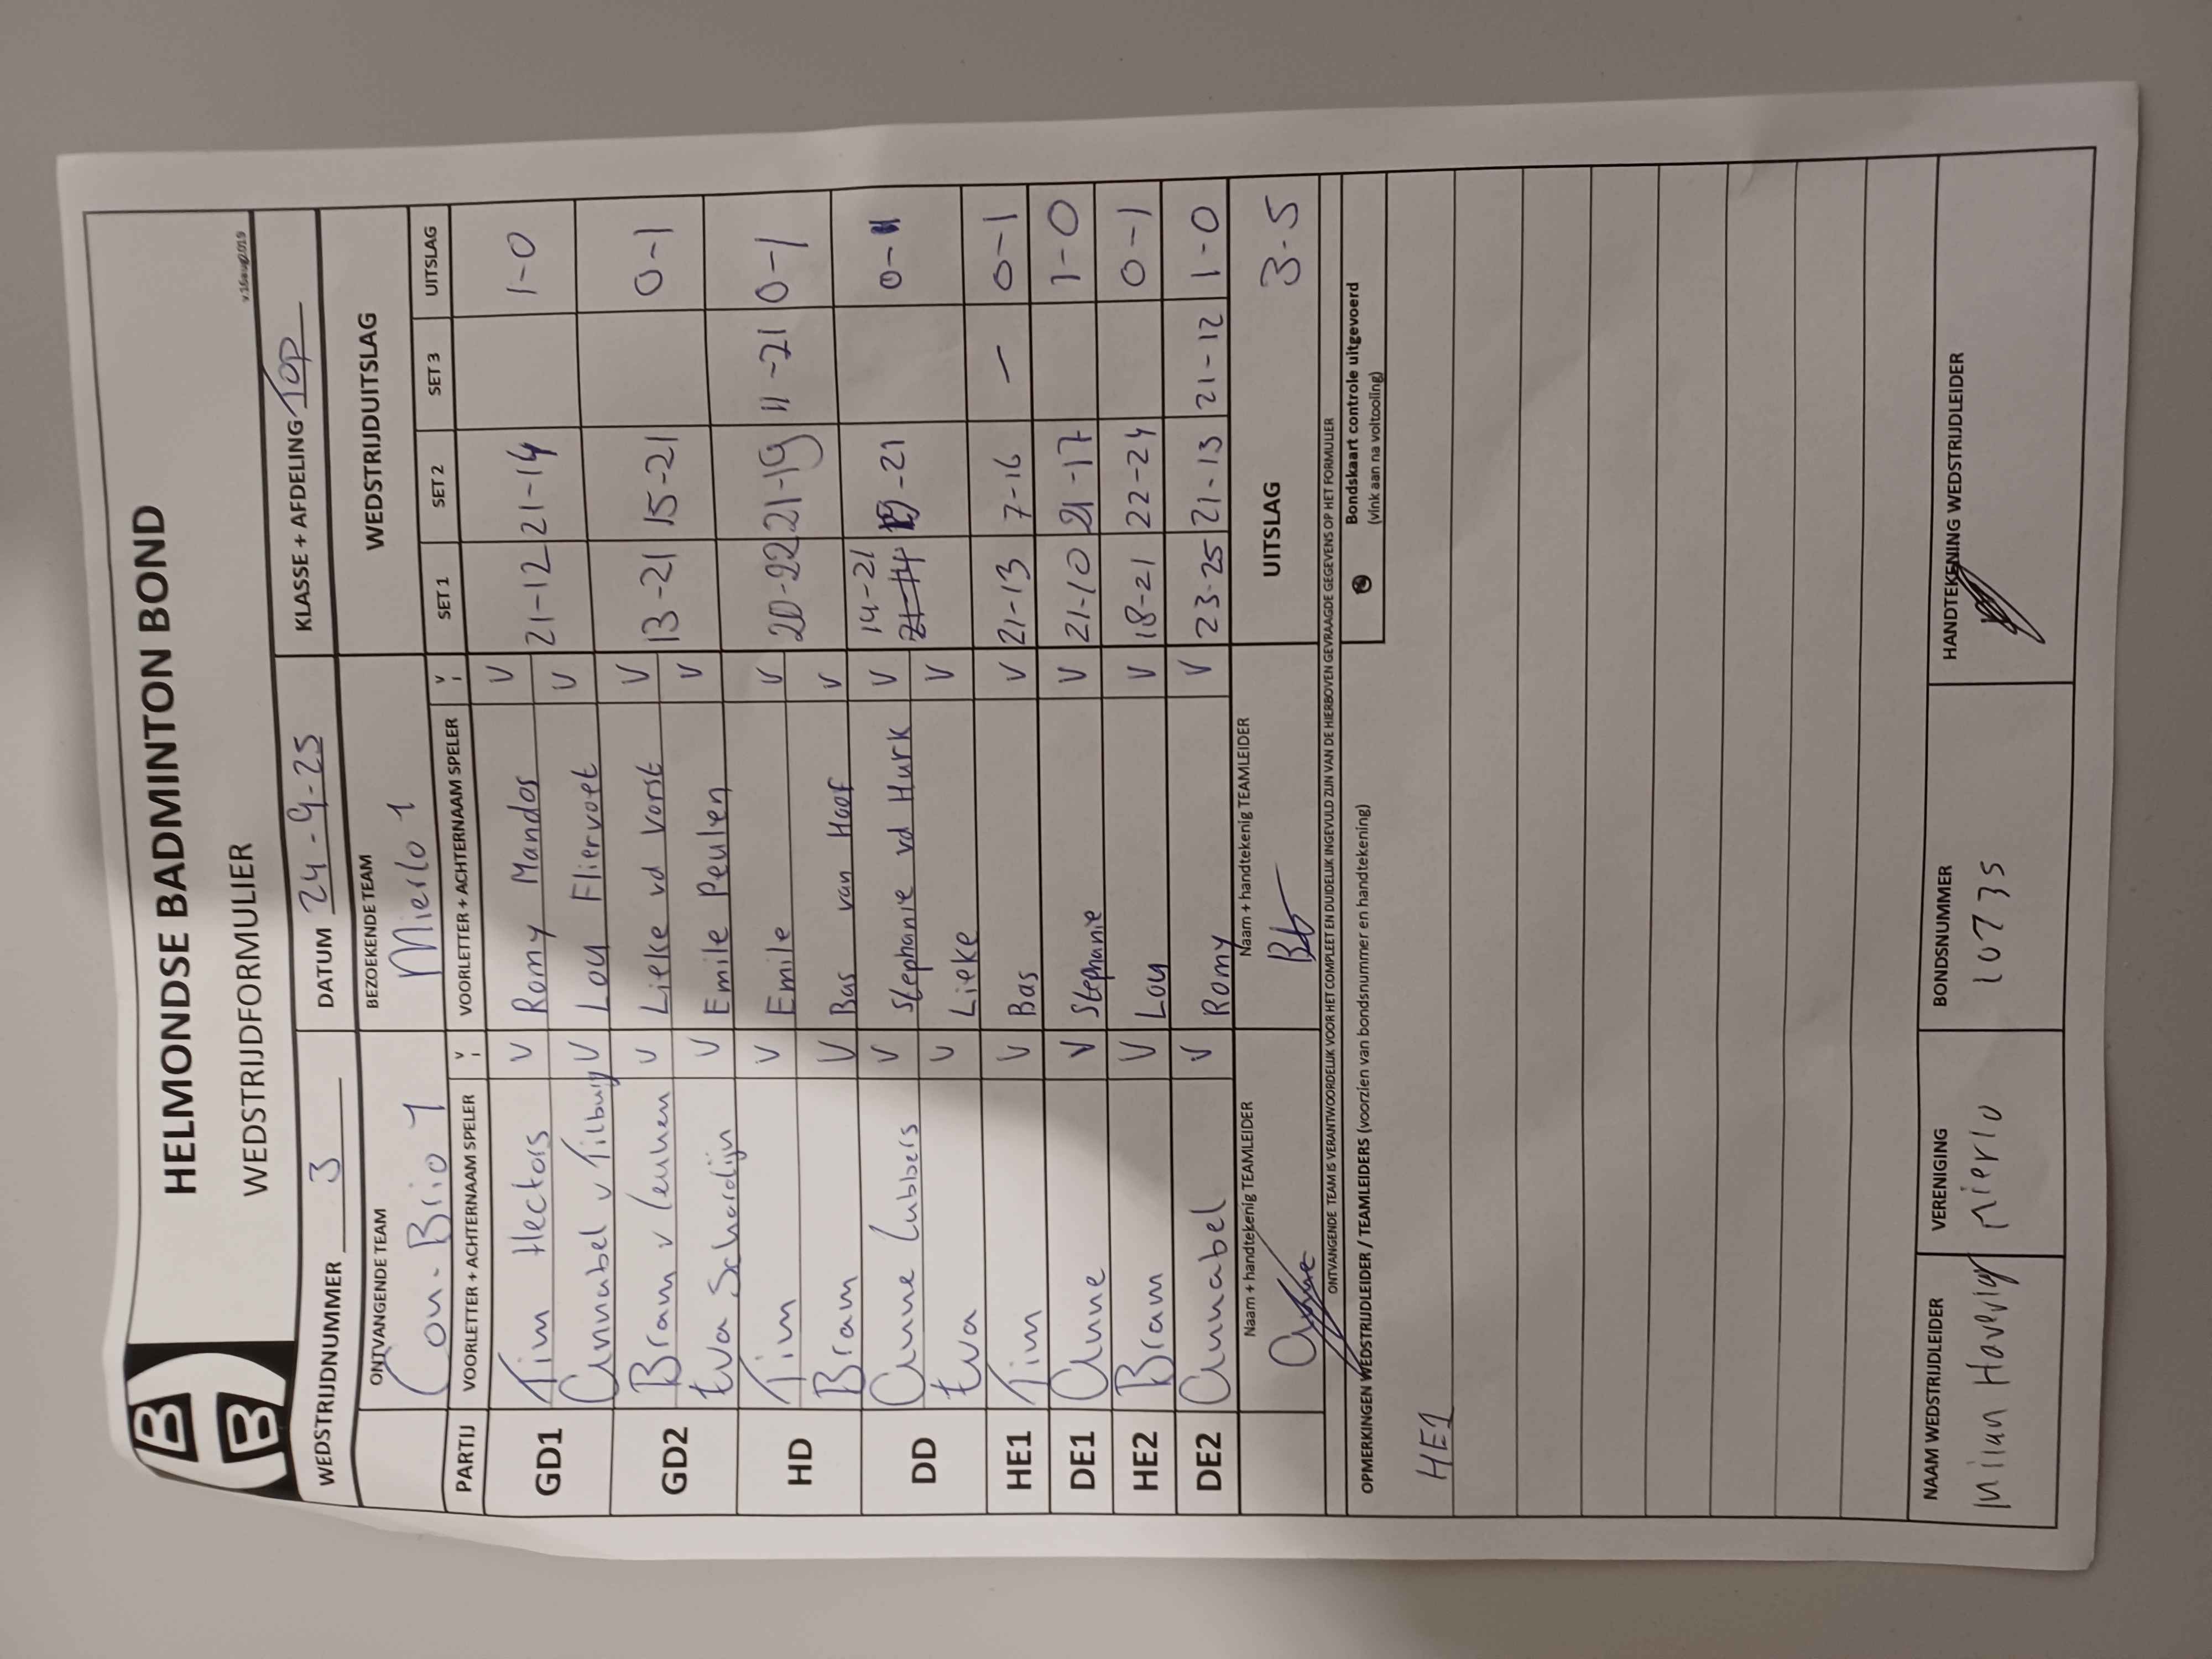 HELMONDSE BADMINTON BOND
WEDSTRIJDFORMULIER
v.16aug2019
WEDSTRIJDNUMMER 3 DATUM 24-9-25 KLASSE + AFDELING Top
ONTVANGENDE TEAM BEZOEKENDE TEAM WEDSTRIJDUITSLAG
Con-Brio 1 Mierlo 1
PARTIJ VOORLETTER + ACHTERNAAM SPELER V VOORLETTER + ACHTERNAAM SPELER V SET 1 SET 2 SET 3 UITSLAG
GD1 Tim Hectors V Romy Mandos V 21-12 21-14 1-0
Annabel v Tilburg V Loy Fliervoet V
GD2 Bram v Leuken V Lieke vd Vorst V 13-21 15-21 0-1
Eva Schardijn V Emile Peulen V
HD Tim V Emile V 20-22 21-19 11-21 0-1
Bram V Bas van Hoof V
DD Anne Lubbers V Stephanie vd Hurk V 14-21 -21 0-1
Eva V Lieke V 21-14
HE1 Tim V Bas V 21-13 7-16 - 0-1
DE1 Anne V Stephanie V 21-10 21-17 1-0
HE2 Bram V Loy V 18-21 22-24 0-1
DE2 Annabel V Romy V 23-25 21-13 21-12 1-0
Naam + handtekenig TEAMLEIDER Naam + handtekenig TEAMLEIDER UITSLAG 3-5
Anne
ONTVANGENDE TEAM IS VERANTWOORDELIJK VOOR HET COMPLEET EN DUIDELIJK INGEVULD ZIJN VAN DE HIERBOVEN GEVRAAGDE GEGEVENS OP HET FORMULIER
OPMERKINGEN WEDSTRIJDLEIDER / TEAMLEIDERS (voorzien van bondsnummer en handtekening)
Bondskaart controle uitgevoerd
(vink aan na voltooiing)
HE1
NAAM WEDSTRIJDLEIDER VERENIGING BONDSNUMMER HANDTEKENING WEDSTRIJDLEIDER
Milan Mierlo 10735